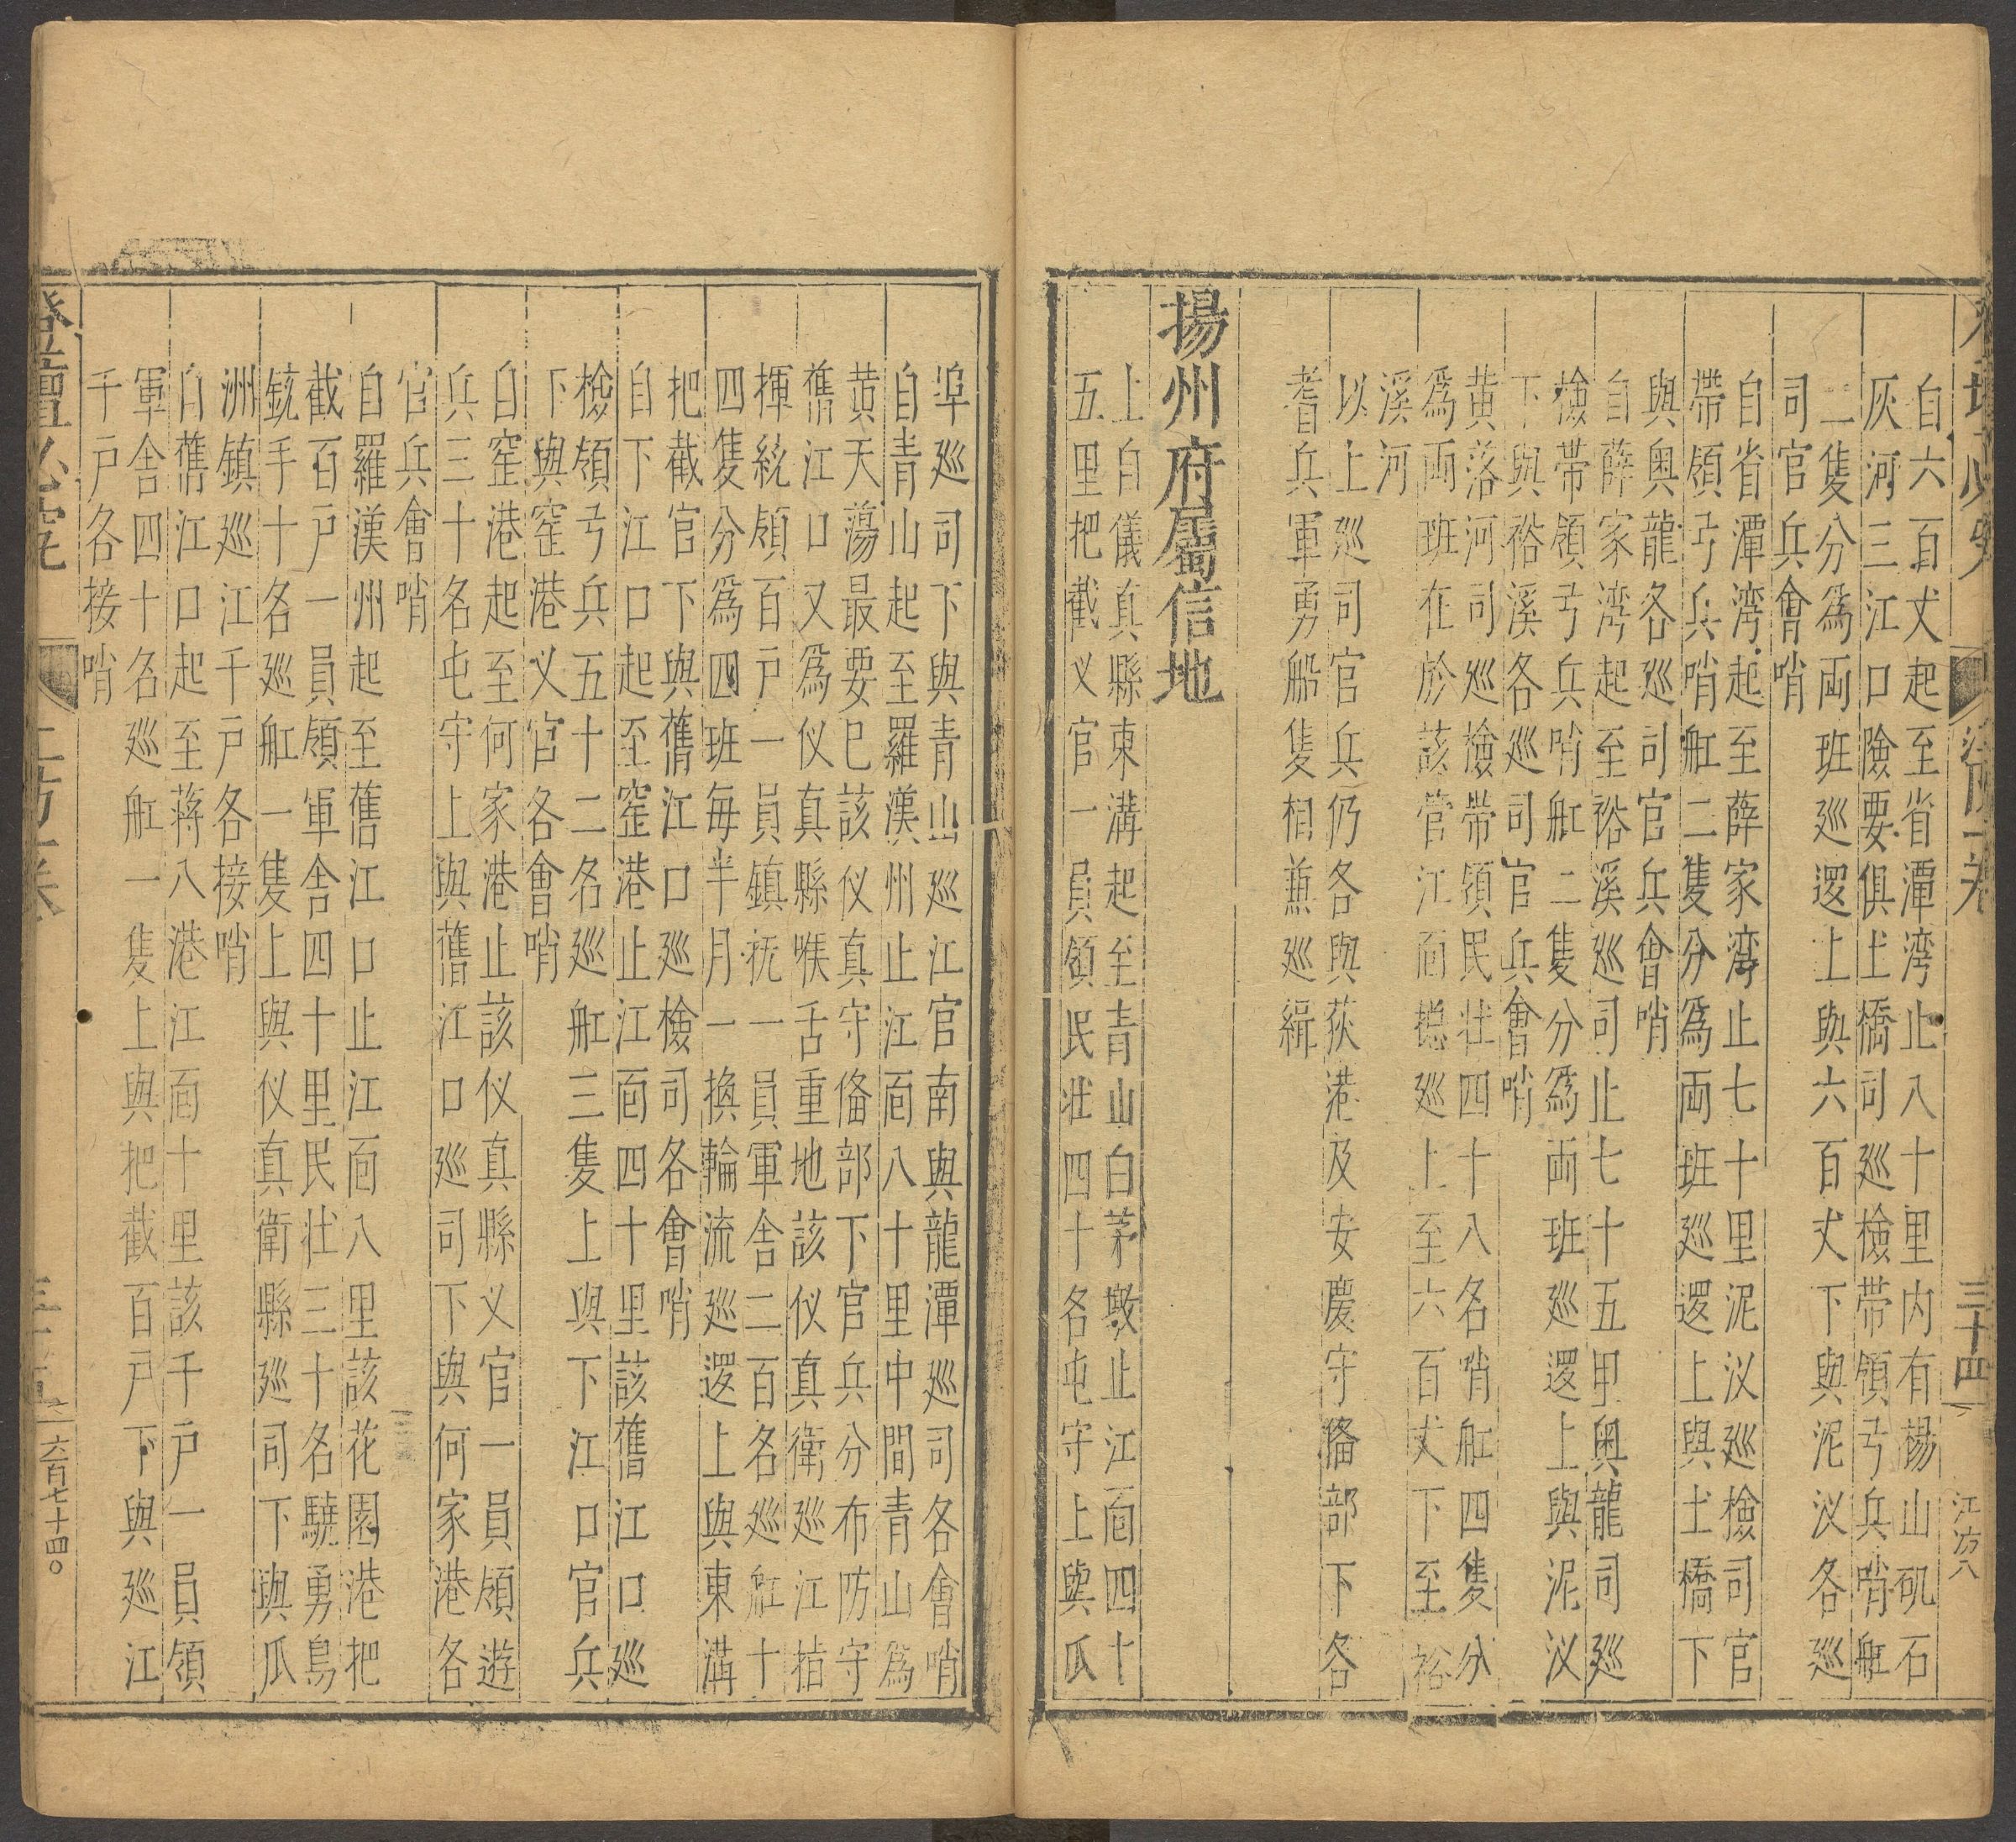 自六百丈起至省潭湾止八十里内有楊山矶石
灰河三江口險要俱土橋司巡檢帶領弓兵哨舡
二隻分為両班巡邏上與六百丈下與泥汊各巡
司官兵會哨
自省潭湾起至薛家湾止七十里泥汊巡檢司官
帶領弓兵哨舡二隻分為両班巡邏上與土橋下
與奥龍各巡司官兵會哨
自薛家湾起至裕溪巡司止七十五里奥龍司巡
檢帶領弓兵哨舡二隻分為両班巡邏上與泥汊
下與裕溪各巡司官兵會哨
黄落河司巡檢帶領民壮四十八名哨舡四隻分
為両班在於該管江面總巡上至六百丈下至裕
溪河
以上巡司官兵仍各與荻港及安慶守俻部下各
耆兵軍勇船隻相兼巡緝
揚州府屬信地
上自儀真縣東溝起至青山白茅墩止江面四十
五里把截义官一員領民壮四十名屯守上與瓜
埠巡司下與青山巡江官南與龍潭巡司各會哨
自青山起至羅漢州止江面八十里中間青山為
黄天蕩最要已該仪真守俻部下官兵分布防守
舊江口又為仪真縣喉舌重地該仪真衛巡江指
揮統領百戸一員鎮撫一員軍舎二百名巡舡十
四隻分為四班每半月一換輪流巡邏上與東溝
把截官下與舊江口巡檢司各會哨
自下江口起至窪港止江面四十里該舊江口巡
檢領弓兵五十二名巡舡三隻上與下江口官兵
下與窪港义官各會哨
自窪港起至何家港止該仪真縣义官一員領遊
兵三十名屯守上與舊江口巡司下與何家港各
官兵會哨
自羅漢州起至舊江口止江面八里該花園港把
截百戸一員領軍舎四十里民壮三十名驍勇鳥
銃手十名巡舡一隻上與仪真衛縣巡司下與瓜
洲鎮巡江千戸各接哨
自舊江口起至蒋八港江面十里該千戸一員領
軍舎四十名巡舡一隻上與把截百戸下與巡江
千戸各接哨
三十四
江防八
六百七十四